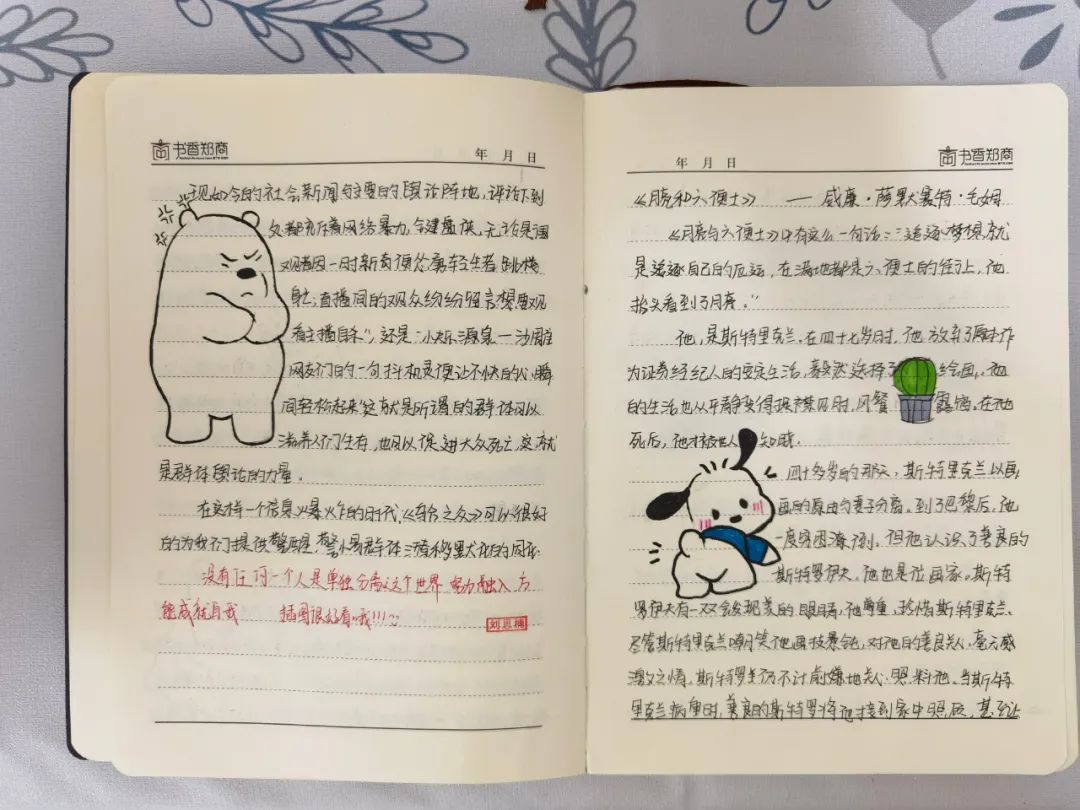 书香郑商
年 月 日
现如今的社会新闻与主要的舆论阵地,评论下到
处都充斥着网络暴力,令建盘侠,无论是围
观者因一时新奇便怂恿轻生者跳楼
身亡;直播间的观众纷纷留言想要观
看主播自杀",还是"小小乐源泉——沙雕
网友们的一句抖机灵便让不快的心瞬
间轻松起来"这就是所谓的群体可以
滋养人们生存,也可以促进大众死亡,这就
是群体舆论的力量。
在这样一个信息火暴炸的时代,《乌合之众》可以很好
的为我们提供警醒,警惕群体 情 的
没有任何一个人是单独分离这个世界 努力融入 方
能成就自我 插图很好看哦!!!~
年 月 日
书香郑商
《月亮和六便士》 —— 威廉·萨默塞特·毛姆
《月亮与六便士》中有这么一句话:"追逐梦想就
是追逐自己的厄运,在满地都是六便士的街上,他
抬头看到了月亮。"
他,是斯特里克兰,在四十七岁时,他放弃了原本作
为证券经纪人的安定生活,毅然选择了 绘画,他
的生活也从平静变得 ,风餐 露宿。在他
死后,他才被世人 知晓。
四十多岁的那天,斯特里克兰以画
画的原由与妻子分离。到了巴黎后,他
一度穷困潦倒。但他认识了善良的
斯特罗伊夫。他也是位画家。斯特
罗伊夫有一双会发现美的眼睛,他尊重、珍惜斯特里克兰、
尽管斯特里克兰嘲笑他画技 ,对他的善良关心,毫无感
激之情。斯特罗 仍不计前嫌地关心照料他。当斯特
里克兰病重时,善良的斯特罗将他接到家中照顾,甚至让